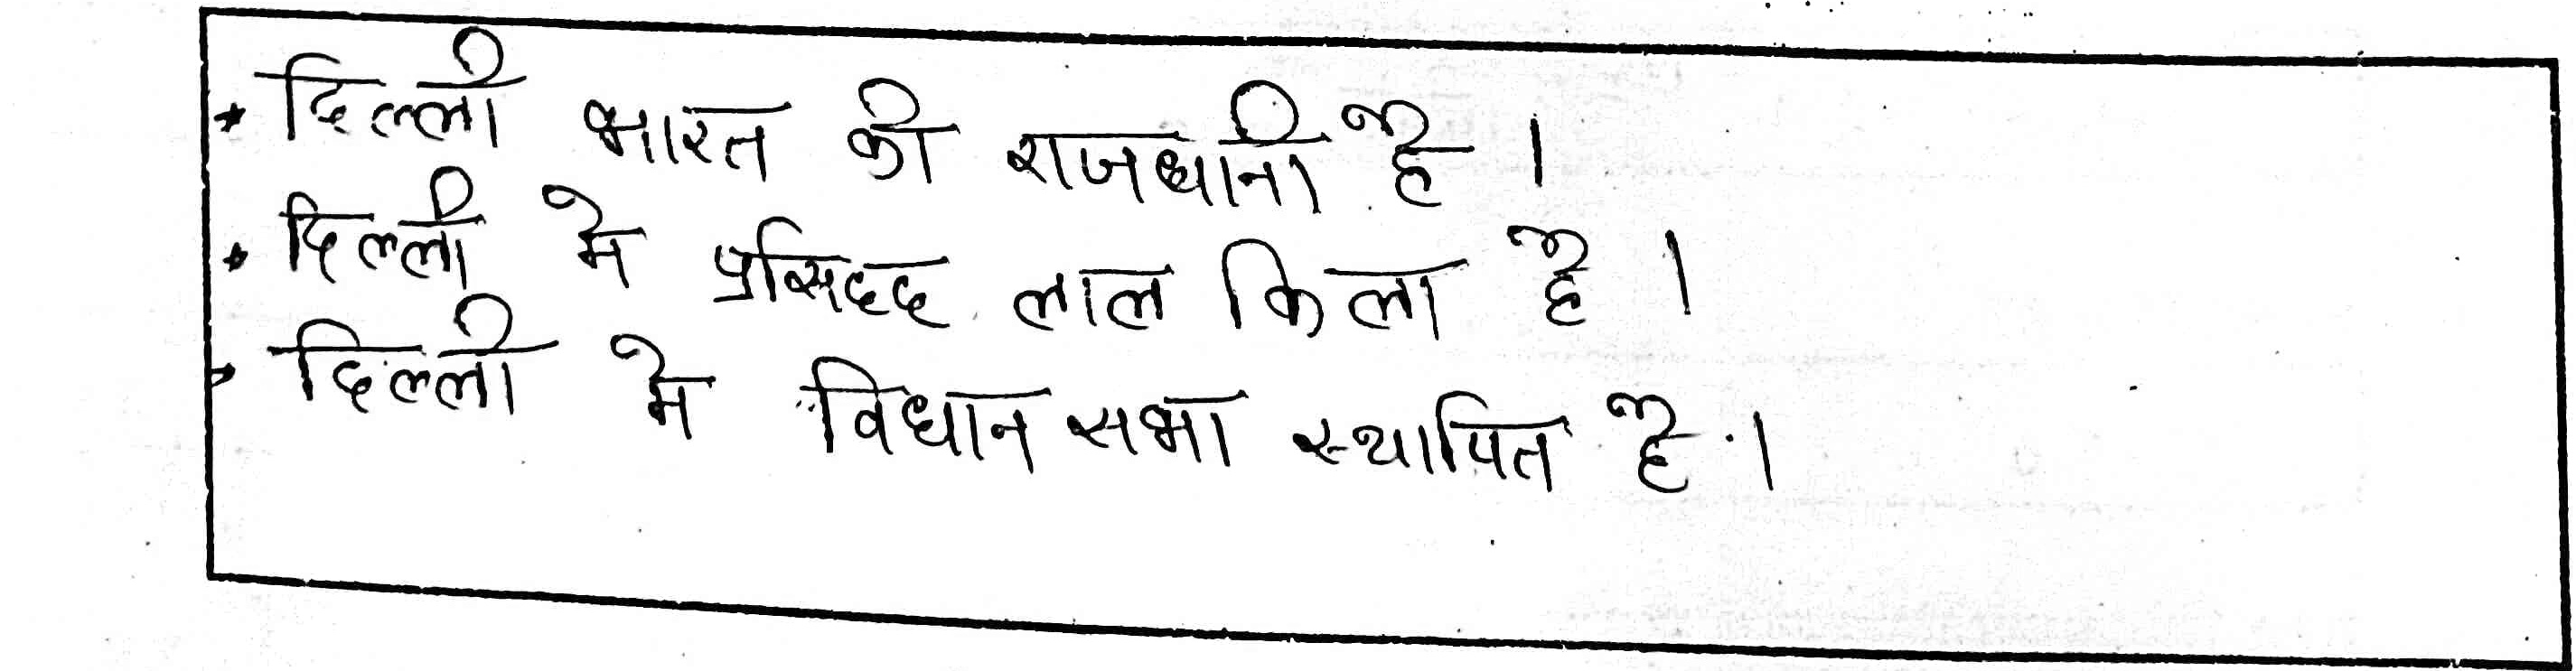 * दिल्ली भारत की राजधानी है ।
* दिल्ली मे प्रसिद्द लाल किला है ।
* दिल्ली मे विधान सभा स्थापित है ।